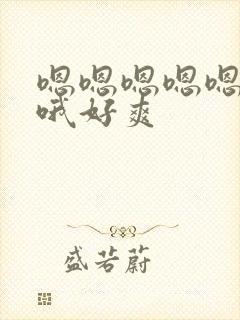 嗯嗯嗯嗯嗯
哦好爽
盛若蔚